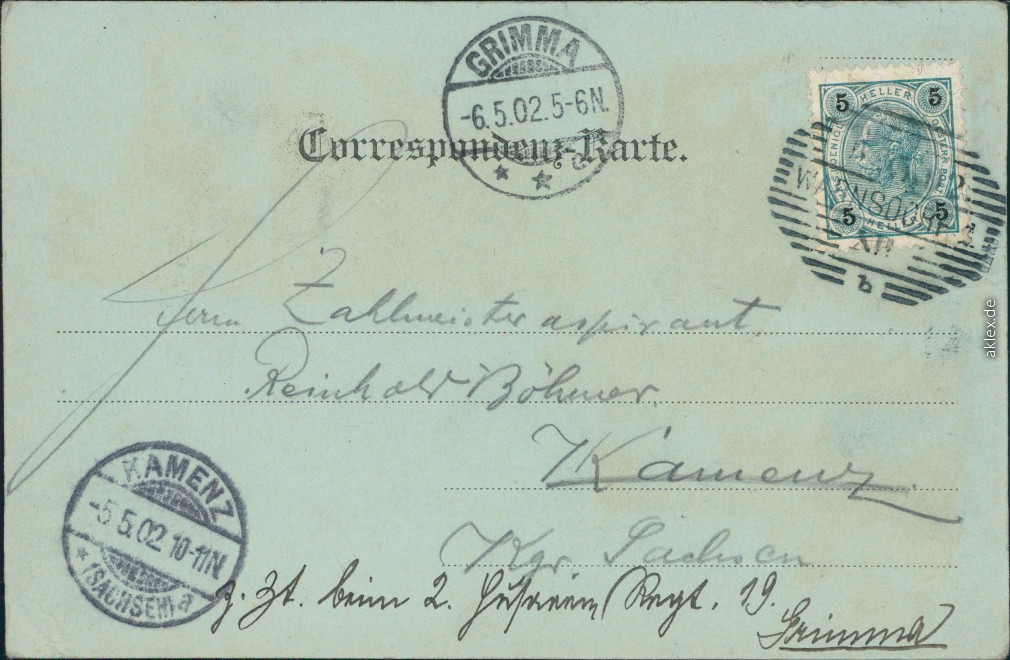 GRIMMA
-6.5.02.5-6N.
Correspondenz-Karte.
5 HELLER 5
5 HELLER 5
WARNSDORF
b
Herrn Zahlmeisteraspirant
Reinhold Böhmer.
Kamenz.
Kgr. Sachsen
KAMENZ
-5.5.02.10-11N.
* (SACHSEN) a
z. Zt. beim 2. Husaren Regt. 19.
Grimma
aklex.de